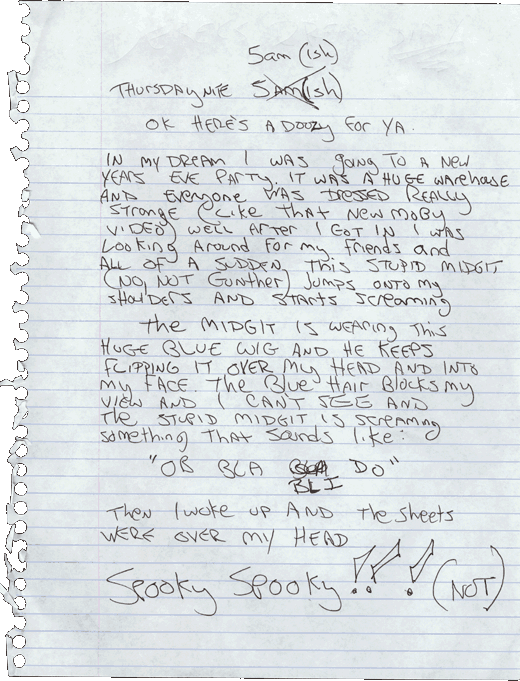 5am (ish)
THURSDAY NITE 5AM (ish)
OK HERE'S A DOOZY FOR YA.
IN MY DREAM I WAS going TO A NEW
YEARS EVE PARTY. IT WAS A HUGE warehouse
AND EVERYONE WAS DRESSED REALLY
STRANGE (LIKE THAT NEW MOBY
VIDEO) WELL AFTER I GOT IN I WAS
LOOKING AROUND FOR my friends and
ALL OF A SUDDEN THIS STUPID MIDGIT
(NO, NOT GUNTHER) JUMPS ONTO MY
SHOULDERS AND STARTS SCREAMING
THE MIDGIT IS WEARING THIS
HUGE BLUE WIG AND HE KEEPS
FLIPPING IT OVER MY HEAD AND INTO
MY FACE. THE BLUE HAIR BLOCKS MY
VIEW AND I CAN'T SEE AND
THE STUPID MIDGIT IS SCREAMING
SOMETHING THAT SOUNDS LIKE:
"OB BLA BLA DO"
BLI
THEN I WOKE UP AND THE SHEETS
WERE OVER MY HEAD
SPOOKY SPOOKY!!! (NOT)